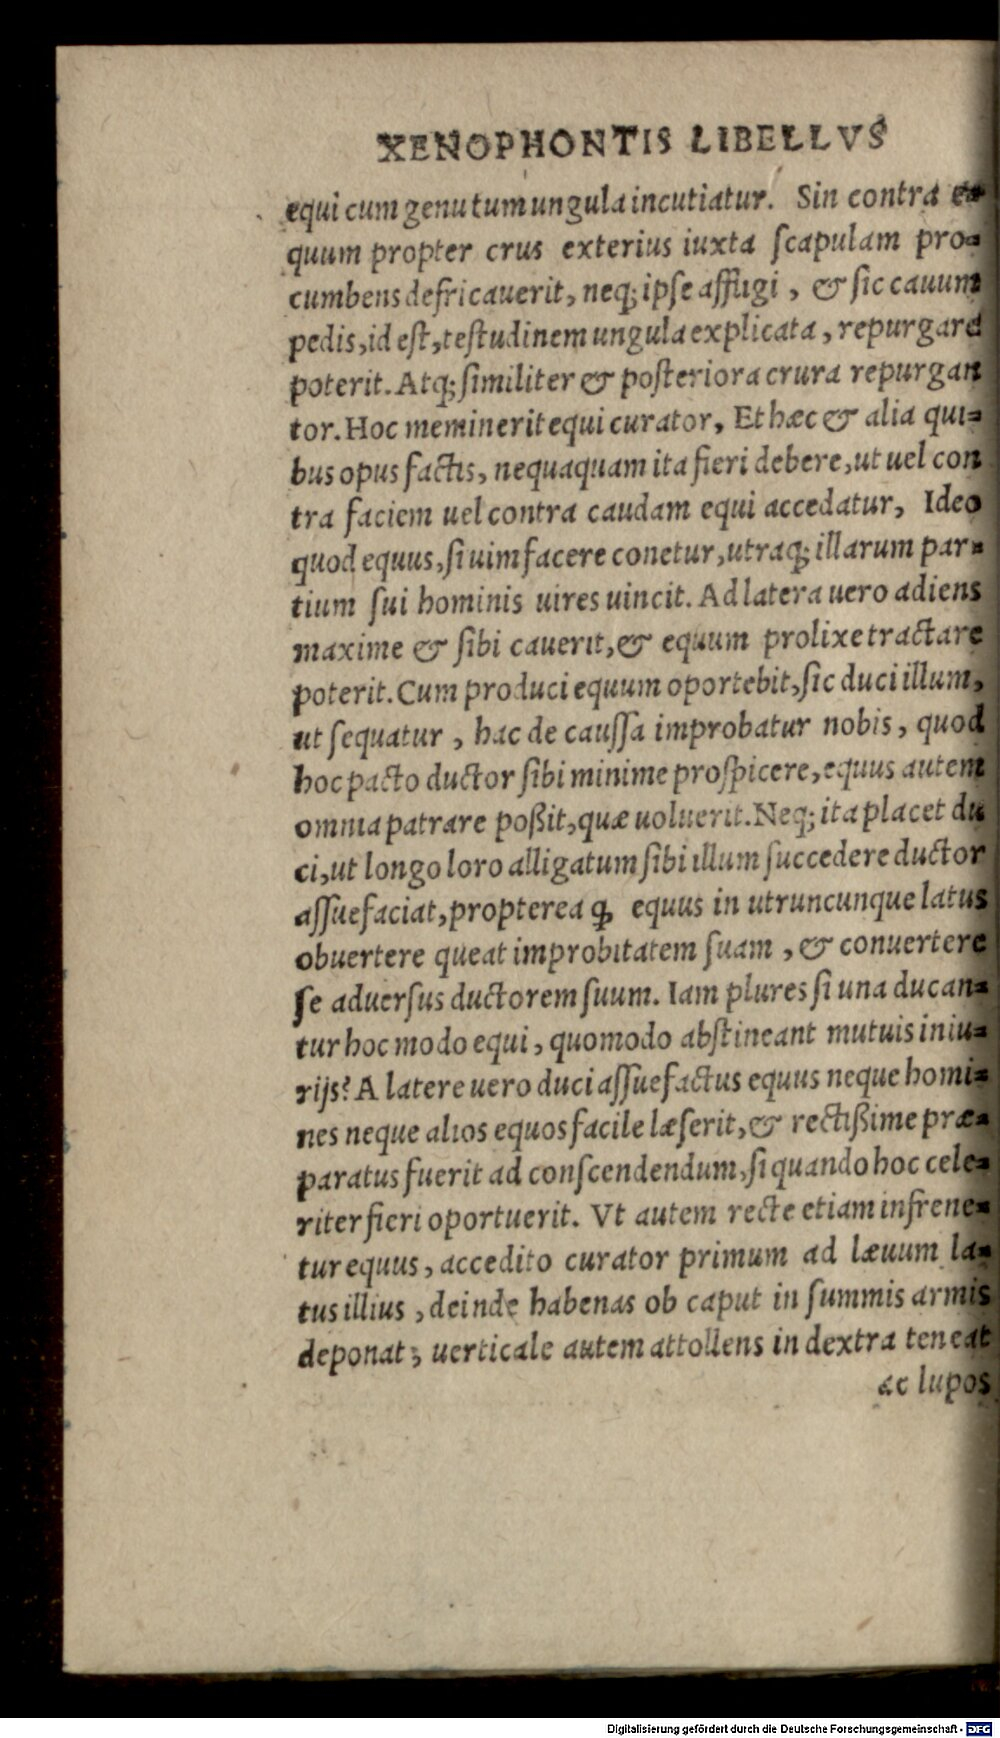 XENOPHONTIS LIBELLVS
equi cum genu tum ungula incutiatur. Sin contra e-
quum propter crus exterius iuxta ſcapulam pro-
cumbens defricauerit, neq; ipſe affligi, & ſic cauum
pedis, id eſt, teſtudinem ungula explicata, repurgare
poterit. Atq; ſimiliter & poſteriora crura repurgan
tor. Hoc meminerit equi curator, Et hæc & alia qui-
bus opus factis, nequaquam ita fieri debere, ut uel con
tra faciem uel contra caudam equi accedatur, Ideo
quod equus, ſi uim facere conetur, utraq; illarum par-
tium ſui hominis uires uincit. Ad latera uero adiens
maxime & ſibi cauerit, & equum prolixe tractare
poterit. Cum produci equum oportebit, ſic duci illum,
ut ſequatur, hac de cauſſa improbatur nobis, quod
hoc pacto ductor ſibi minime proſpicere, equus autem
omnia patrare poßit, quæ uoluerit. Neq; ita placet du
ci, ut longo loro alligatum ſibi illum ſuccedere ductor
aſſuefaciat, propterea ꝙ equus in utruncunque latus
obuertere queat improbitatem ſuam, & conuertere
ſe aduerſus ductorem ſuum. Iam plures ſi una ducan-
tur hoc modo equi, quomodo abſtineant mutuis iniu-
rijs? A latere uero duci aſſuefactus equus neque homi-
nes neque alios equos facile læſerit, & rectißime præ-
paratus fuerit ad conſcendendum, ſi quando hoc cele-
riter fieri oportuerit. Vt autem recte etiam infrene-
tur equus, accedito curator primum ad læuum la-
tus illius, deinde habenas ob caput in ſummis armis
deponat; uerticale autem attollens in dextra teneat
ac lupos
Digitalisierung gefördert durch die Deutsche Forschungsgemeinschaft - DFG